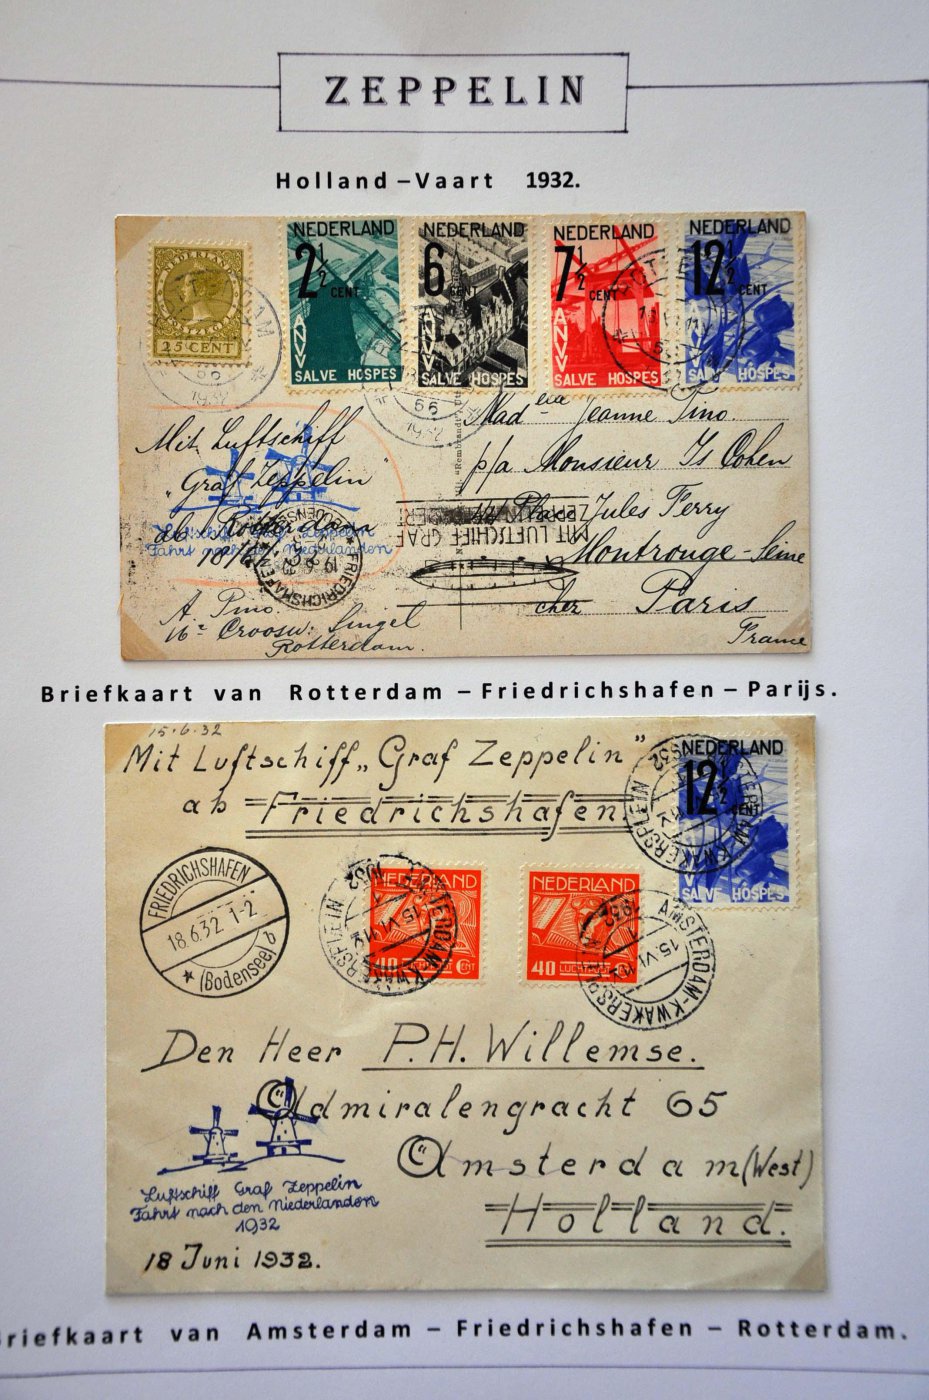 ZEPPELIN
Holland – Vaart 1932.
NEDERLAND
25 CENT
1932
NEDERLAND
2½
CENT
ANVV
SALVE HOSPES
NEDERLAND
6
CENT
ANVV
SALVE HOSPES
66
1932
NEDERLAND
7½
CENT
ANVV
SALVE HOSPES
NEDERLAND
12½
CENT
SALVE HOSPES
Mit Luftschiff
"Graf Zeppelin"
ab Rotterdam
18/6/32
Luftschiff Graf Zeppelin
Fahrt nach den Niederlanden
FRIEDRICHSHAFEN
A. Pino.
Singel
Rotterdam.
Jeanne Pino.
p/a Monsieur Is Cohen
Jules Ferry
Montrouge-Seine
Paris
France
MIT LUFTSCHIFF GRAF
ZEPPELIN BEFÖRDERT
Briefkaart van Rotterdam – Friedrichshafen – Parijs.
15.6.32
Mit Luftschiff „Graf Zeppelin"
ab Friedrichshafen
NEDERLAND
12½
CENT
SALVE HOSPES
FRIEDRICHSHAFEN
18.6.32 1-2
(Bodensee) b
NEDERLAND
40 CENT
NEDERLAND
40
AMSTERDAM-KWAKERSPLEIN
15.VI
1932
Den Heer P.H. Willemse.
Admiralengracht 65
Amsterdam (West)
Holland.
Luftschiff Graf Zeppelin
Fahrt nach den Niederlanden
1932
18 Juni 1932.
riefkaart van Amsterdam – Friedrichshafen – Rotterdam.